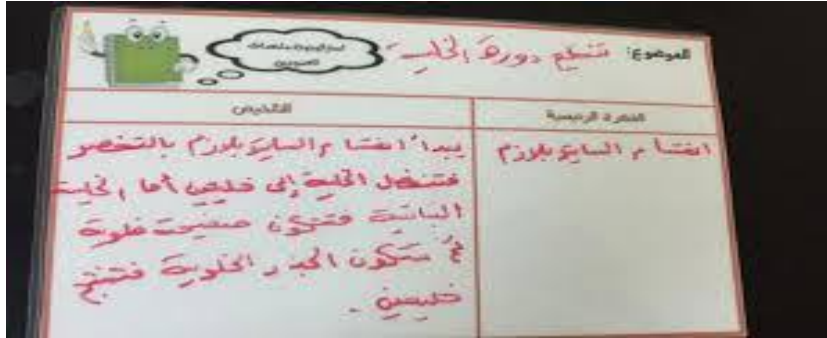 الموضوع: تنظيم دورة الخلية
استراتيجية ملخصات العناوين
الفكرة الرئيسية
التلخيص
انقسام السايتوبلازم
يبدأ انقسام السايتوبلازم بالتخصر
فتنفصل الخلية إلى خليتين أما الخلية
النباتية فتتكون صفيحة خلوية
ثم تتكون الجدر الخلوية فتنتج
خليتين.